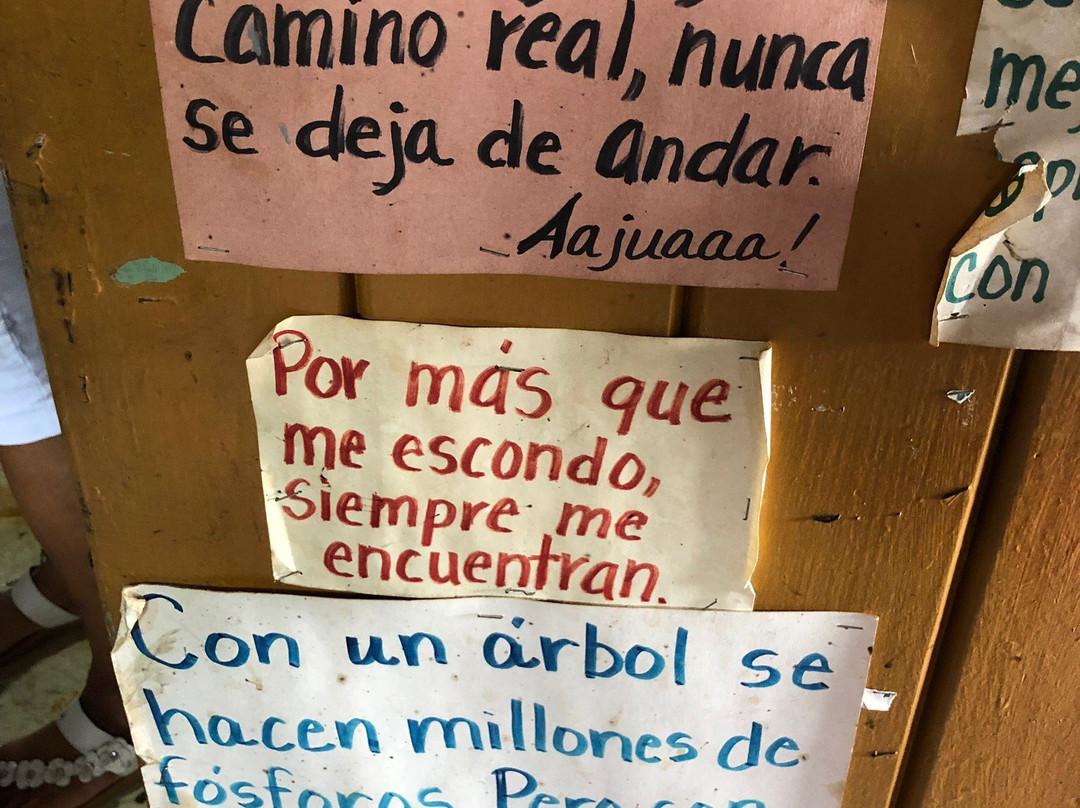 Camino real, nunca
se deja de andar.
Aajuaaa!
Por más que
me escondo,
siempre me
encuentran.
Con un árbol se
hacen millones de
fósforos. Pero con
con